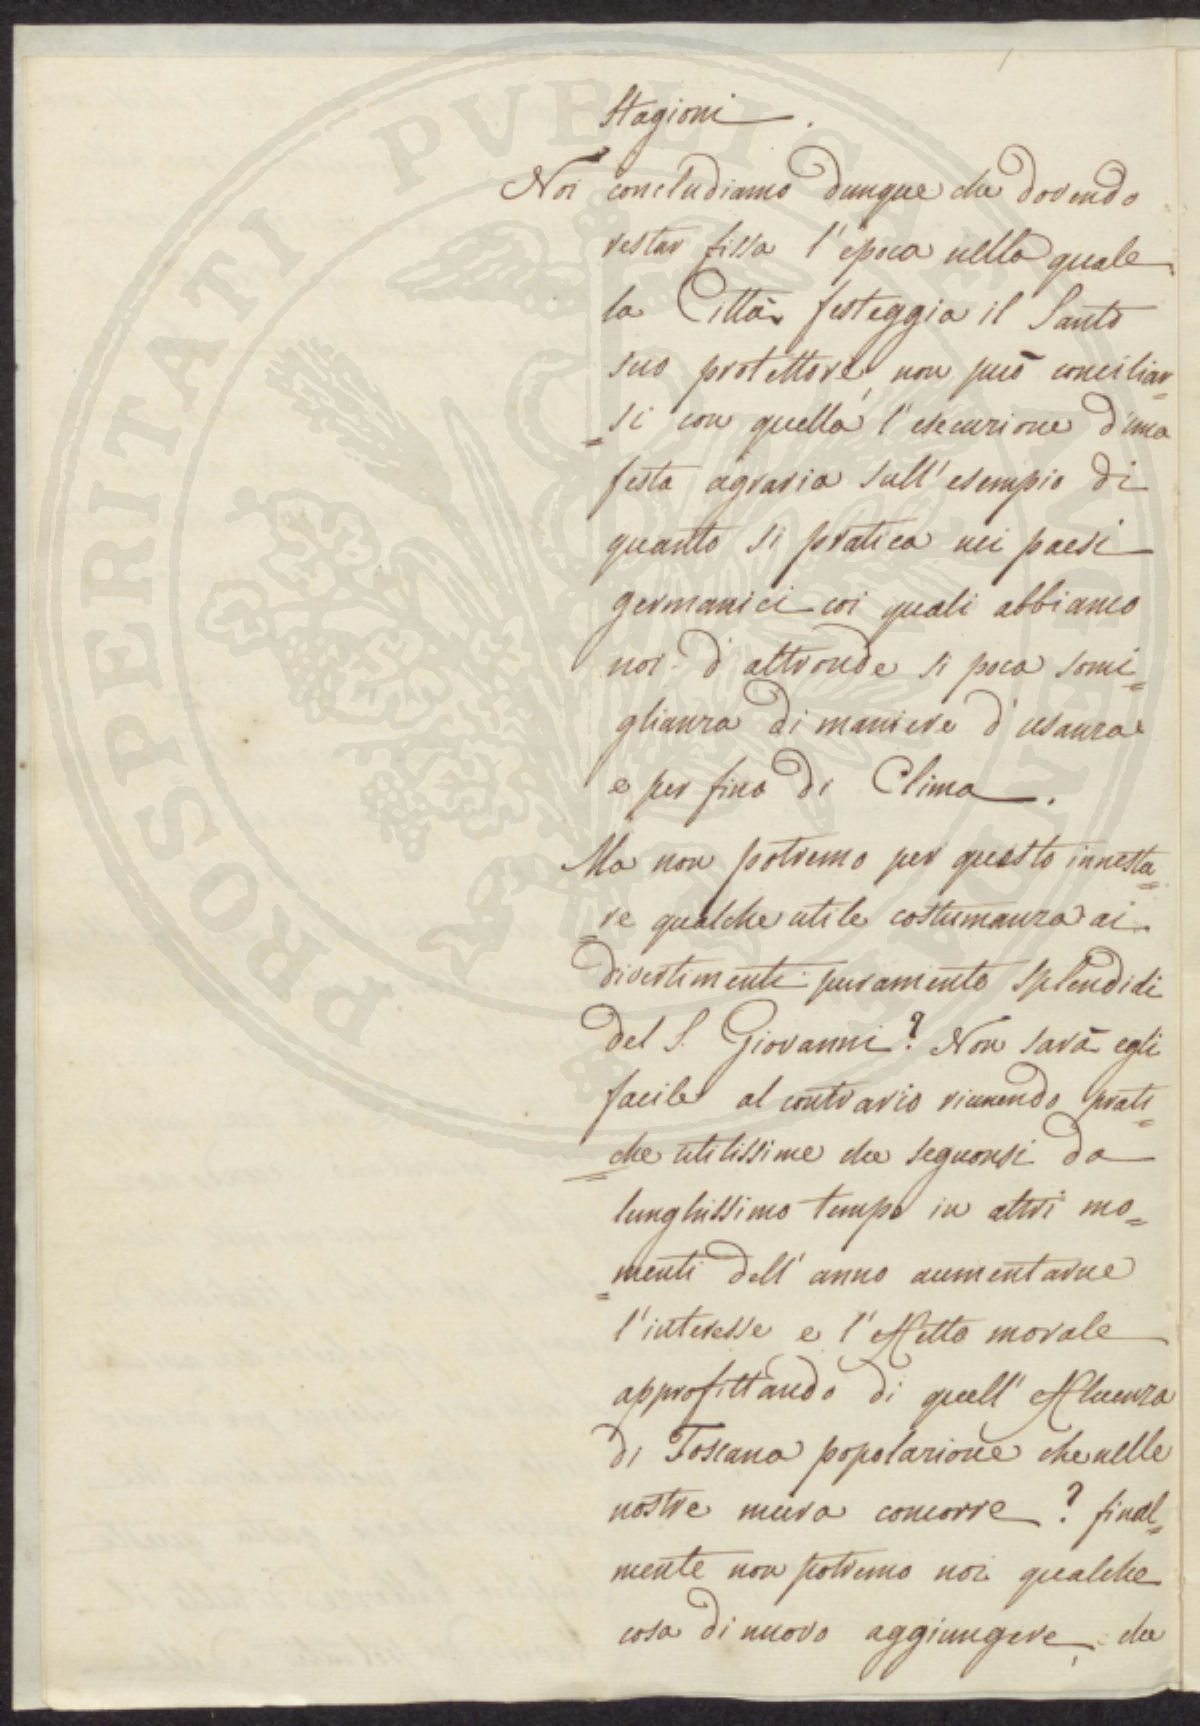 Stagioni.
Noi concludiamo dunque che dovendo
restar fissa l'epoca nella quale
la Città festeggia il Santo
suo protettore, non può conciliar=
=si con quella l'esecuzione d'una
festa agraria sull'esempio di
quanto si pratica nei paesi
germanici coi quali abbiamo
noi d'altronde si poca somi=
glianza di maniere d'usanza
e per fino di Clima.
Ma non potremo per questo innesta=
=re qualche utile costumanza ai
divertimenti puramente splendidi
del S. Giovanni? Non sarà egli
facile al contrario riunendo prati=
=che utilissime che seguonsi da
lunghissimo tempo in altri mo=
=menti dell'anno aumentarne
l'interesse e l'effetto morale
approfittando di quell'affluenza
di Toscana popolazione che nelle
nostre mura concorre? final=
mente non potremo noi qualche
cosa di nuovo aggiungere, che
PROSPERITATI PVBLICAE AVGENDAE